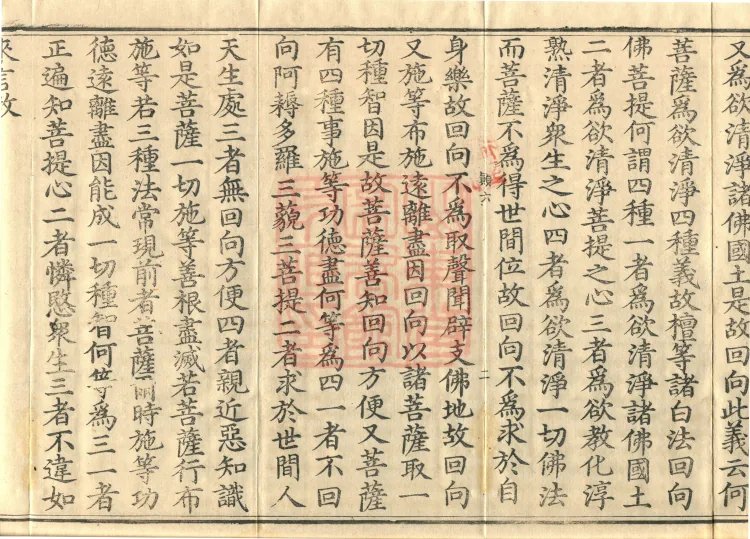 又為欲清淨諸佛國土是故回向此義云何
菩薩為欲清淨四種義故檀等諸白法回向
佛菩提何謂四種一者為欲清淨諸佛國土
二者為欲清淨菩提之心三者為欲教化淳
熟清淨衆生之心四者為欲清淨一切佛法
而菩薩不為得世間位故回向不為求於自
身樂故回向不為取聲聞辟支佛地故回向
又施等布施遠離盡因回向以諸菩薩取一
切種智因是故菩薩善知回向方便又菩薩
有四種事施等功德盡何等為四一者不回
向阿耨多羅三藐三菩提二者求於世間人
天生處三者無回向方便四者親近惡知識
如是菩薩一切施等善根盡滅若菩薩行布
施等若三種法常現前者菩薩爾時施等功
德遠離盡因能成一切種智何等為三一者
正遍知菩提心二者憐愍衆生三者不違如
來言故